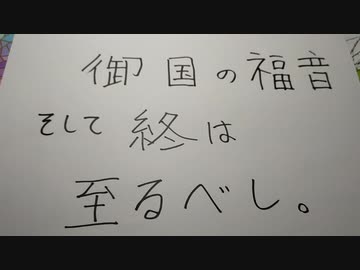 御国の福音
そして終は
至るべし。